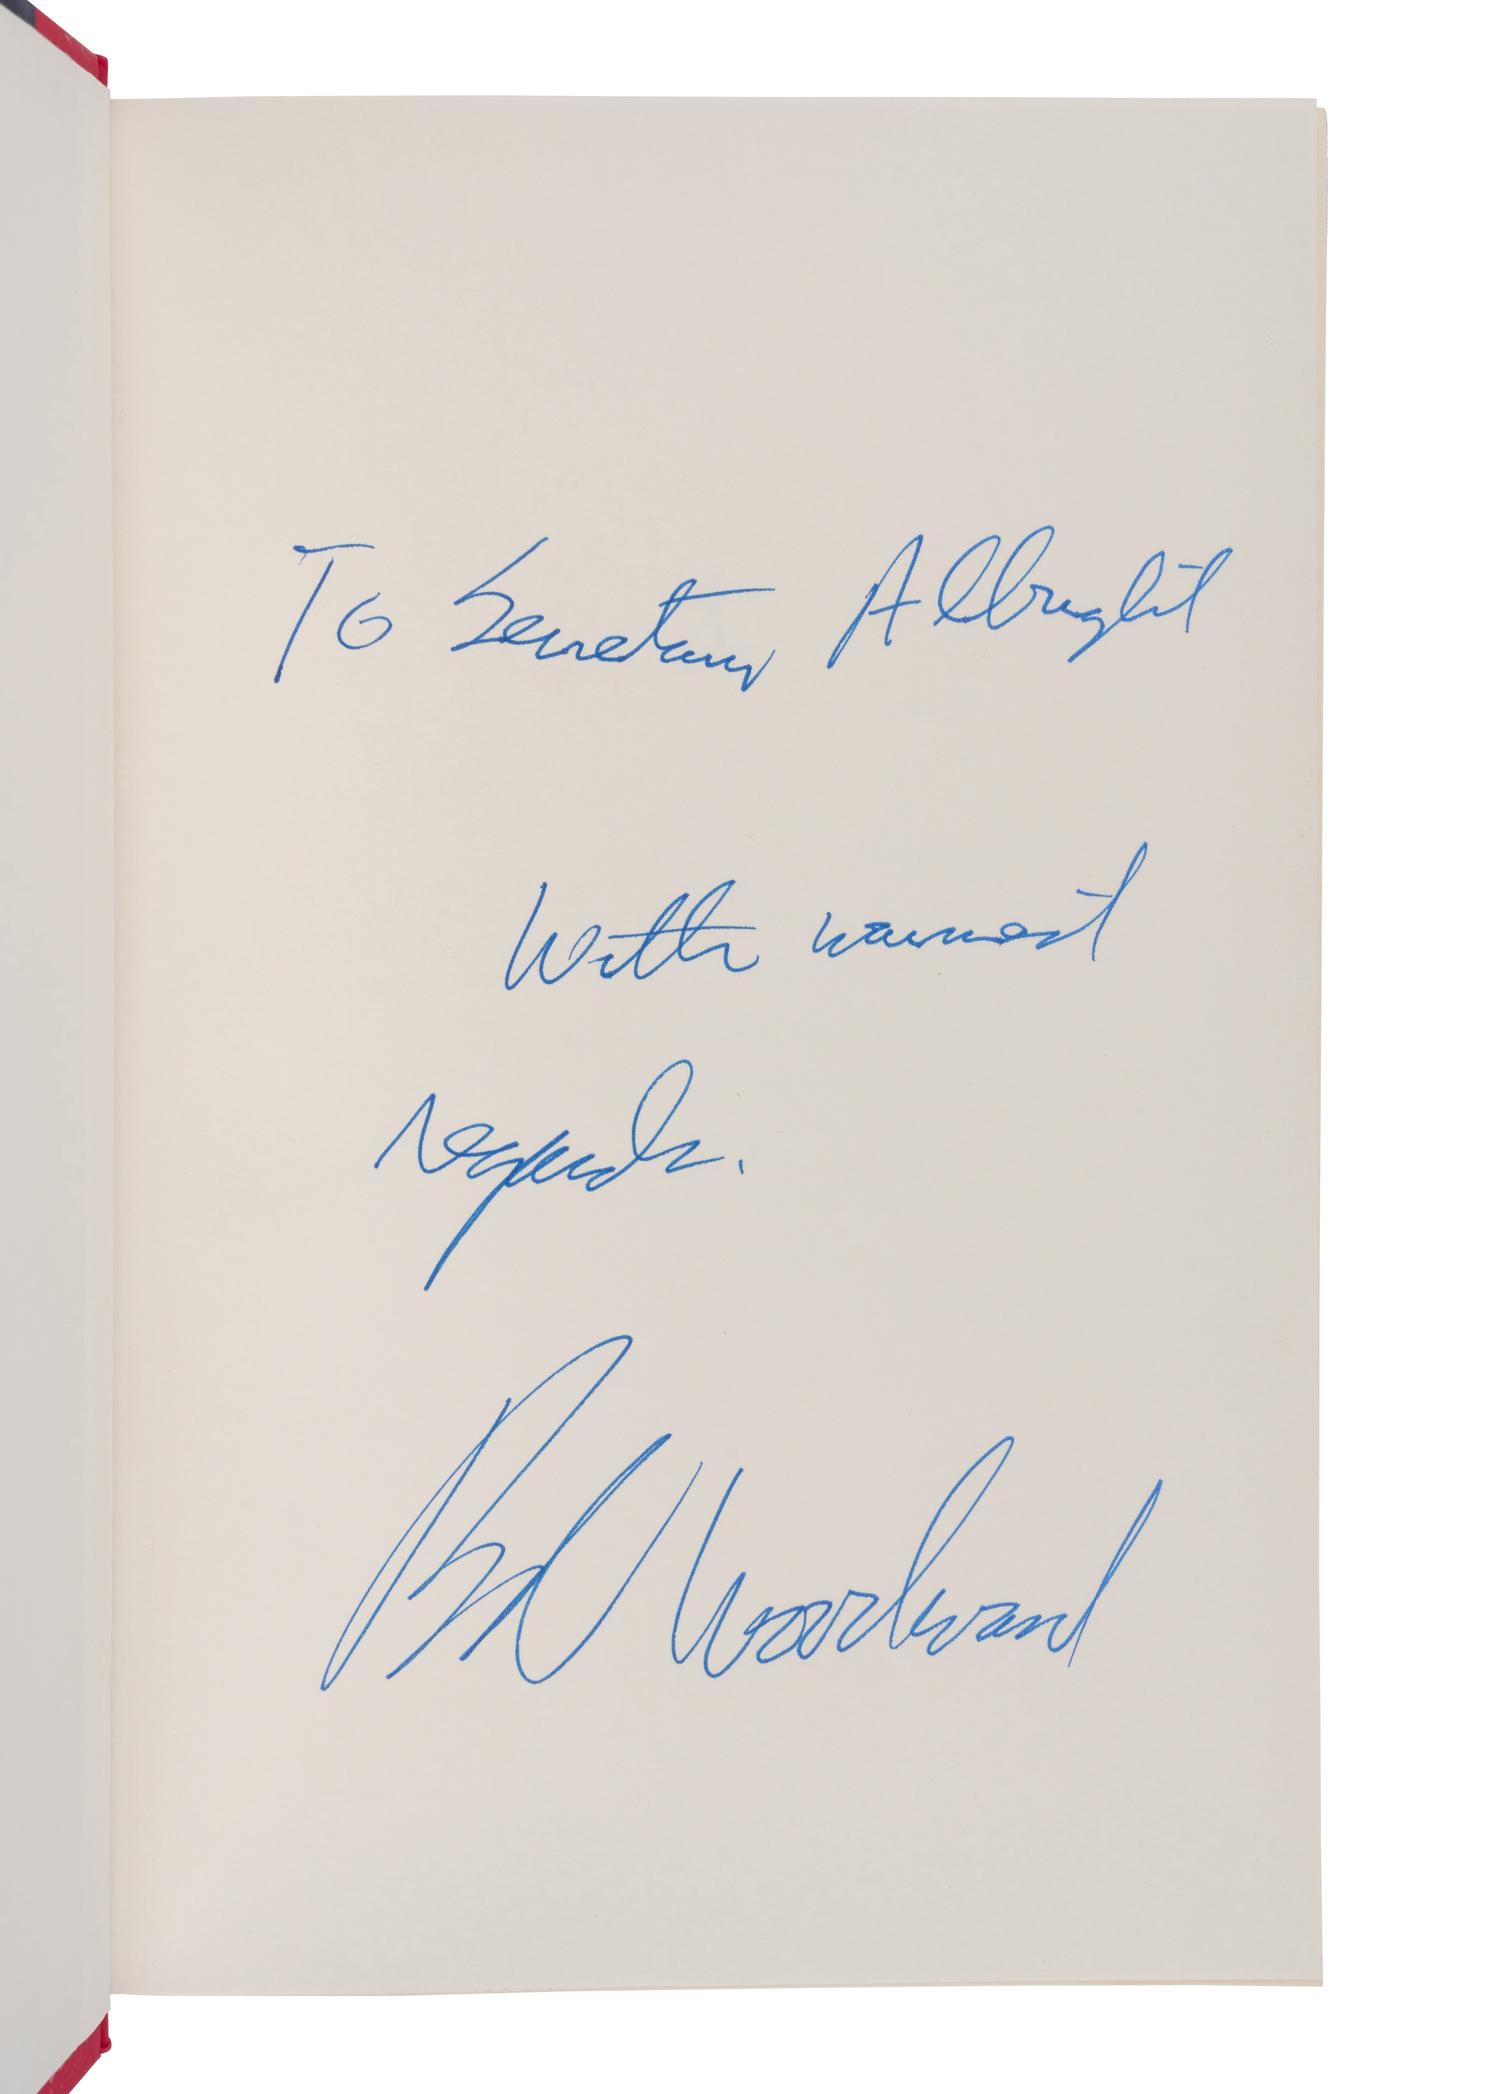 To Secretary Albright
With warmest
regards.
Bob Woodward